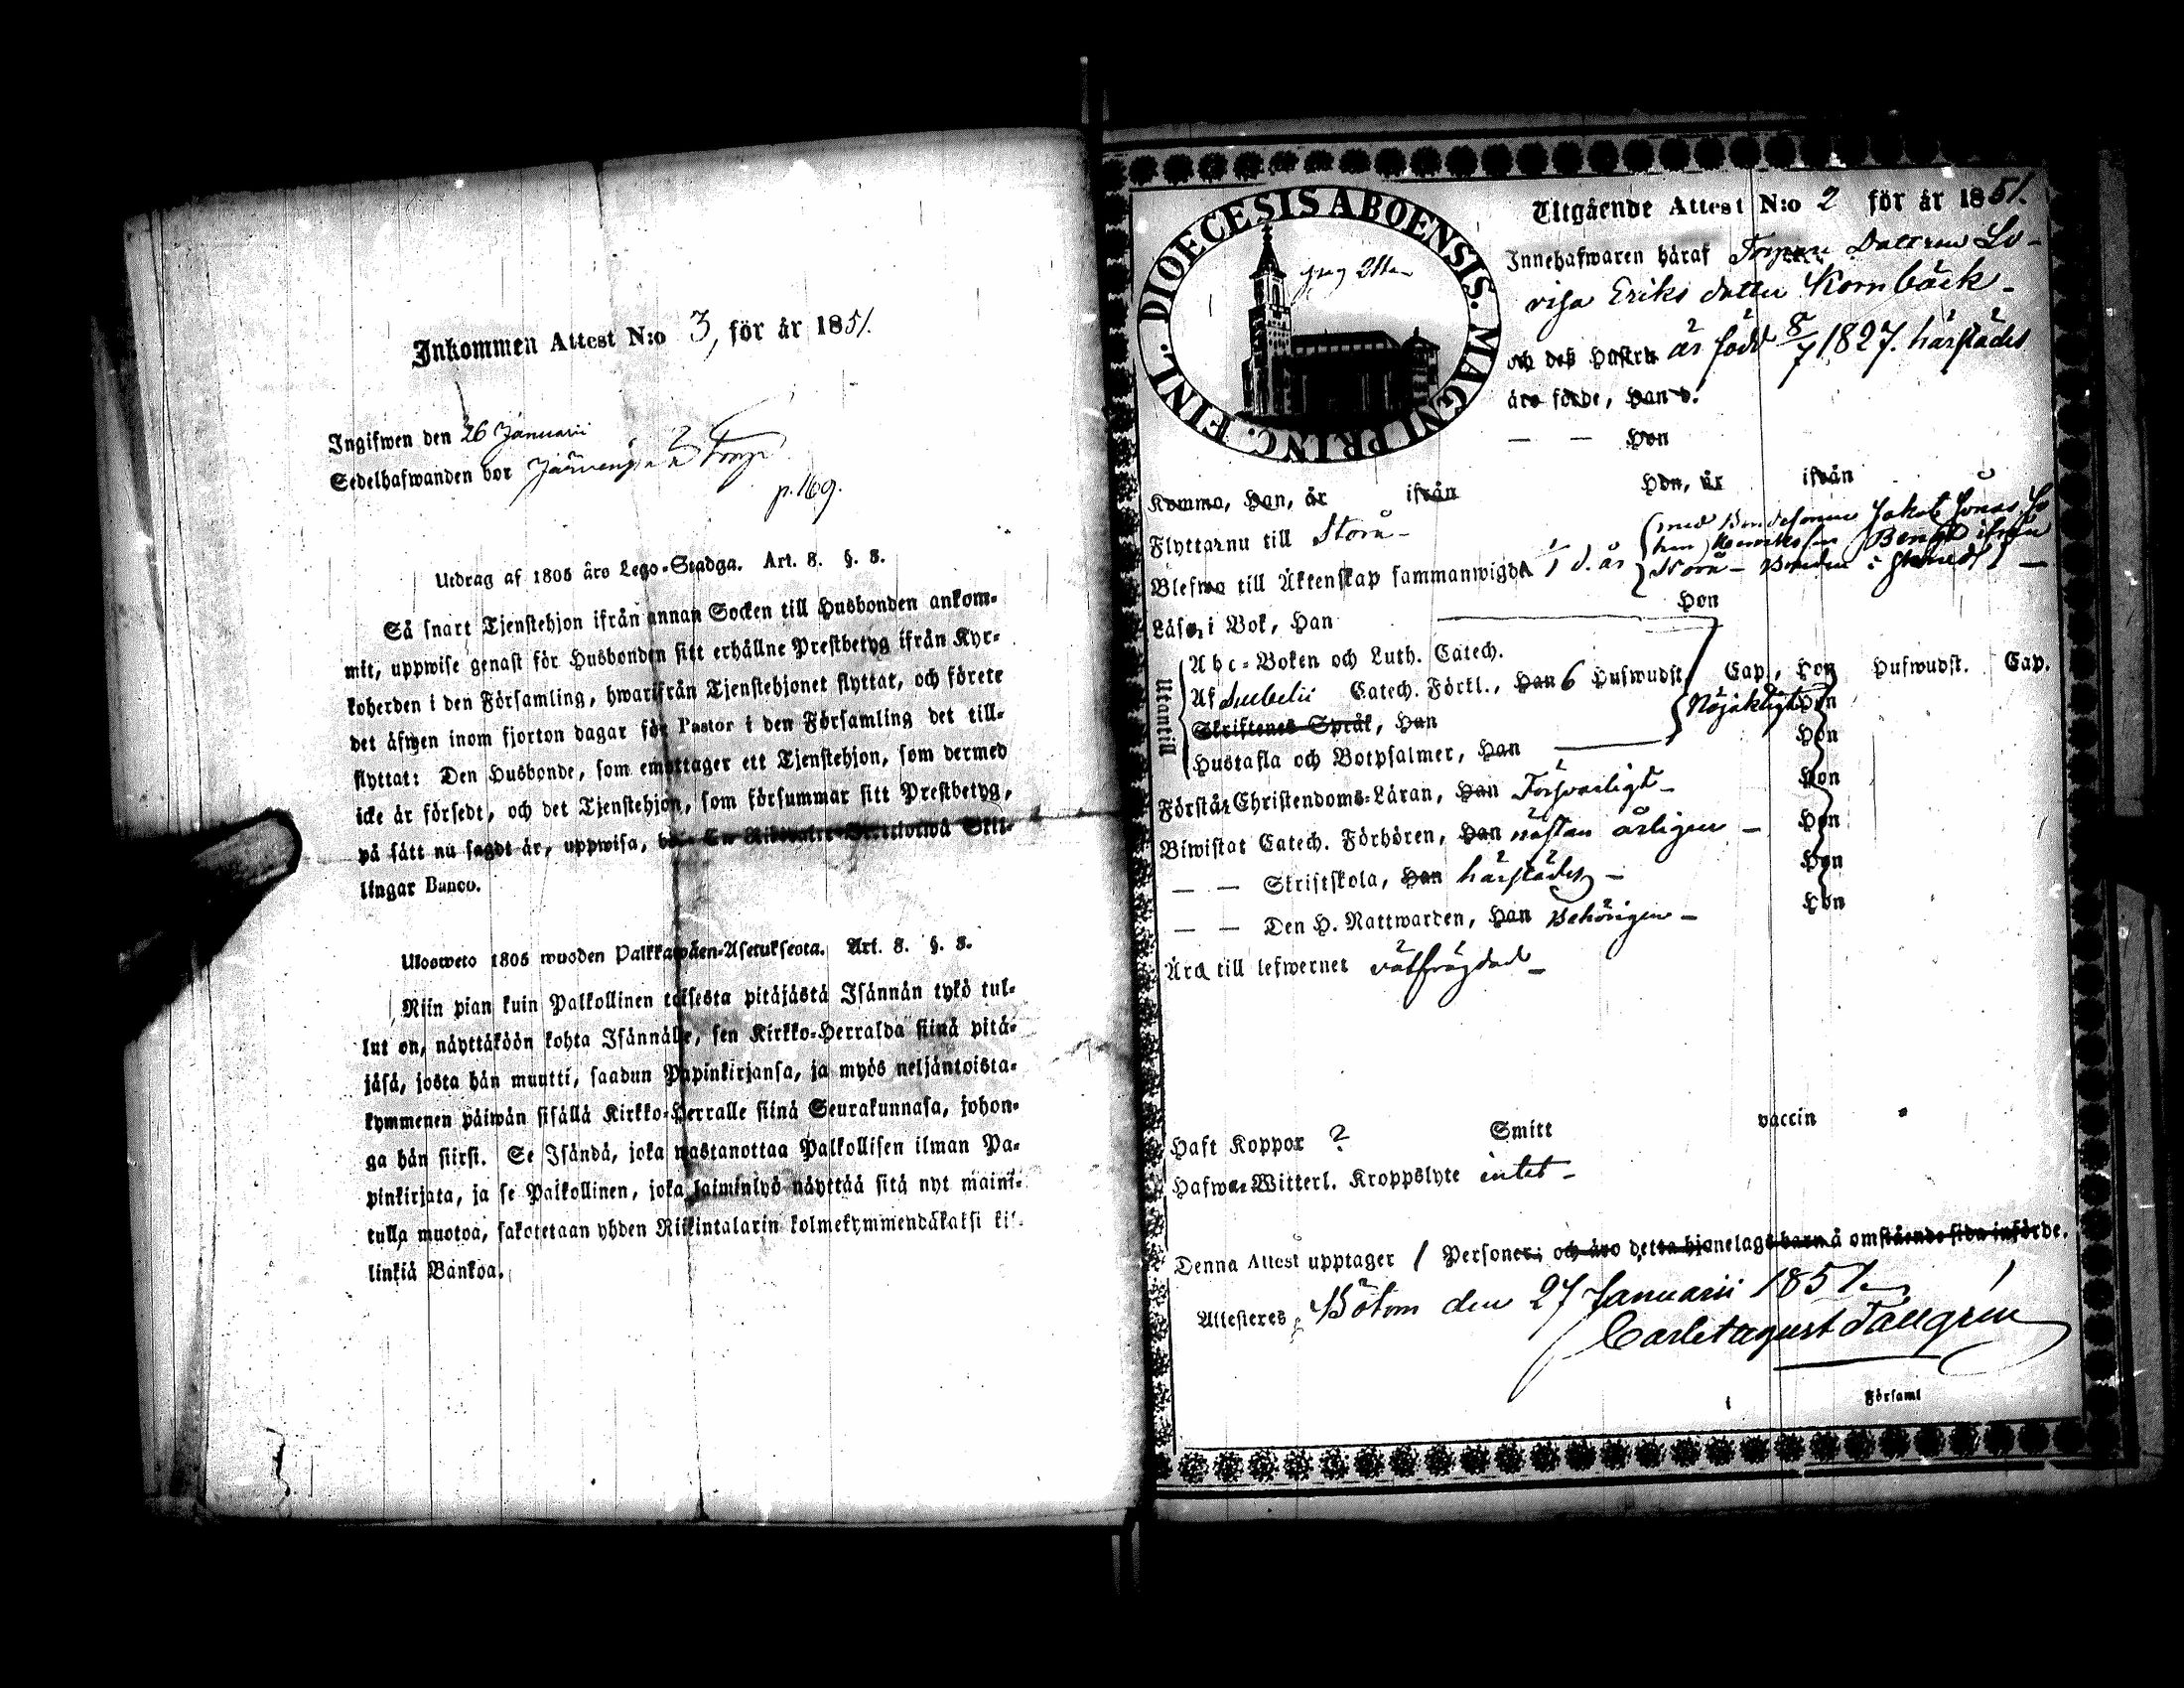 Inkommen Attest N:o 3, för år 1851.
Ingifwen den 26 Januarii
Sedelhafwanden bor Torp
p. 169.
Utdrag af 1805 års Lego-Stadga. Art. 8. §. 8.
Så snart Tjenstehjon ifrån annan Socken till Husbonden ankom-
mit, uppwise genast för Husbonden sitt erhållne Prestbetyg ifrån Kyr-
koherden i den Församling, hwarifrån Tjenstehjonet flyttat, och förete
det äfwen inom fjorton dagar för Pastor i den Församling det till-
flyttat: Den Husbonde, som emottager ett Tjenstehjon, som dermed
icke är försedt, och det Tjenstehjon, som försummar sitt Prestbetyg,
på sätt nu sagdt är, uppwisa, Skil-
lingar Banco.
Ulosweto 1805 wuoden Palkkawäen-Asetuksesta. Art. 8. §. 8.
Niin pian kuin Palkollinen toisesta pitäjästä Isännän tykö tul-
lut on, näyttäköön kohta Isännälle, sen Kirkko-Herralda siinä pitä-
jäsä, josta hän muutti, saadun Papinkirjansa, ja myös neljäntoista-
kymmenen päiwän sisällä Kirkko-Herralle siinä Seurakunnasa, johon-
ga hän siirsi. Se Isändä, joka wastanottaa Palkollisen ilman Pa-
pinkirjata, ja se Palkollinen, joka laiminlyö näyttää sitä nyt maini-
tulla muotoa, sakotetaan yhden Riikintalarin kolmekymmendäkaksi kil-
linkiä Bankoa.
DIOECESIS ABOENSIS. MAGNI PRINC. FINL.
Utgående Attest N:o 2 för år 1851.
Innehafwaren häraf Dottren Lo-
visa Eriks dotter Kornbäck
och deß Hustru är född 8/7 1827. härstädes
äro födde, Han d.
— — Hon
Komma, Han, år ifrån Hon, år ifrån
Flyttar nu till Storå
Blefwo till Äktenskap sammanwigde 1/1 d. år (med Bondesonen Jakob Jonas
Storå Bonden
Läser i Bok, Han Hon
Utantill
Abc-Boken och Luth. Catech.
Af Catech. Förkl., Han 6 Hufwudst. Cap., Hon Hufwudst. Cap.
Skriftenes Språk, Han Nöjaktigt Hon
Hustafla och Botpsalmer, Han Hon
Förstår Christendoms-Läran, Han Försvarligt Hon
Biwistat Catech. Förhören, Han nästan årligen Hon
— — Skriftskola, Han härstädes Hon
— — Den H. Nattwarden, Han Behörigen Hon
Äro till lefwernet välfrägdad
Haft Koppor ? Smitt vaccin
Hafwa Witterl. Kroppslyte intet
Denna Attest upptager 1 Personer; och äro detta hjonelags barn å omstående sida införde.
Attesteres, Bötom den 27 Januarii 1851.
Carl August Tallgrén
Församl